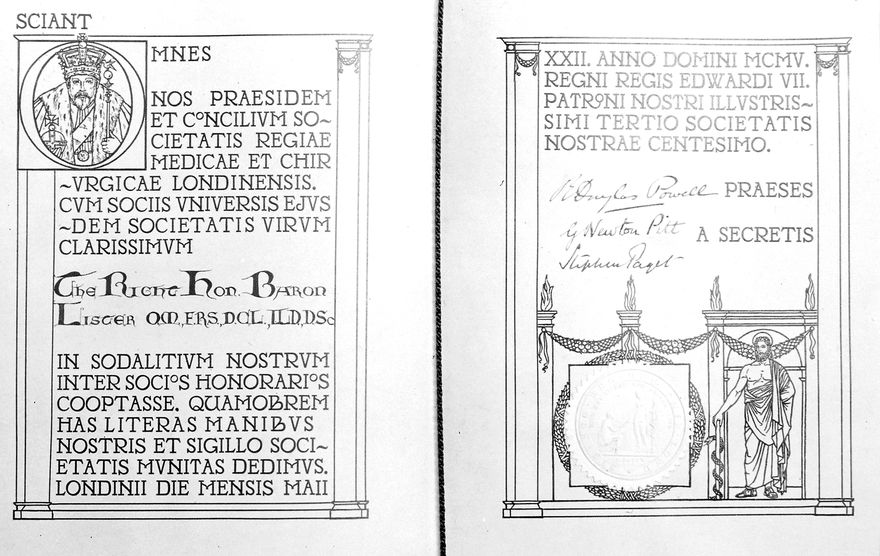 SCIANT
OMNES
NOS PRAESIDEM
ET CONCILIVM SO~
CIETATIS REGIAE
MEDICAE ET CHIR
~VRGICAE LONDINENSIS.
CVM SOCIIS VNIVERSIS EJVS
~DEM SOCIETATIS VIRVM
CLARISSIMVM
The Right Hon. Baron
Lister O.M., F.R.S., D.C.L., LL.D., D.Sc
IN SODALITIVM NOSTRVM
INTER SOCIOS HONORARIOS
COOPTASSE. QUAMOBREM
HAS LITERAS MANIBVS
NOSTRIS ET SIGILLO SOCI-
ETATIS MVNITAS DEDIMVS.
LONDINII DIE MENSIS MAII
XXII. ANNO DOMINI MCMV.
REGNI REGIS EDWARDI VII.
PATRONI NOSTRI ILLVSTRIS~
SIMI TERTIO SOCIETATIS
NOSTRAE CENTESIMO.
R Douglas Powell PRAESES
G Newton Pitt A SECRETIS
Stephen Paget